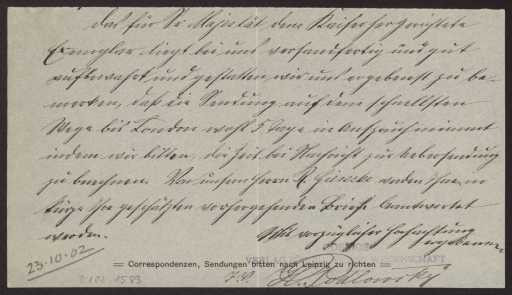 Das für Sr. Majestät dem Kaiser hergerichtete
Exemplar liegt bei uns versandfertig und gut
aufbewahrt und gestatten wir uns ergebenst zu be-
merken, daß die Sendung auf dem schnellsten
Wege bis London wohl 5 Tage in Anspruch nimmt
indem wir bitten, die Zeit bei Nachricht zur Uebersendung
zu berechnen. Von unserm Herrn R. werden Ihnen in
Kürze Ihre geschätzten vorhergehenden Briefe beantwortet
werden.
Mit vorzüglicher Hochachtung
ergebenst
23.10.02
= Correspondenzen, Sendungen bitten nach Leipzig zu richten =